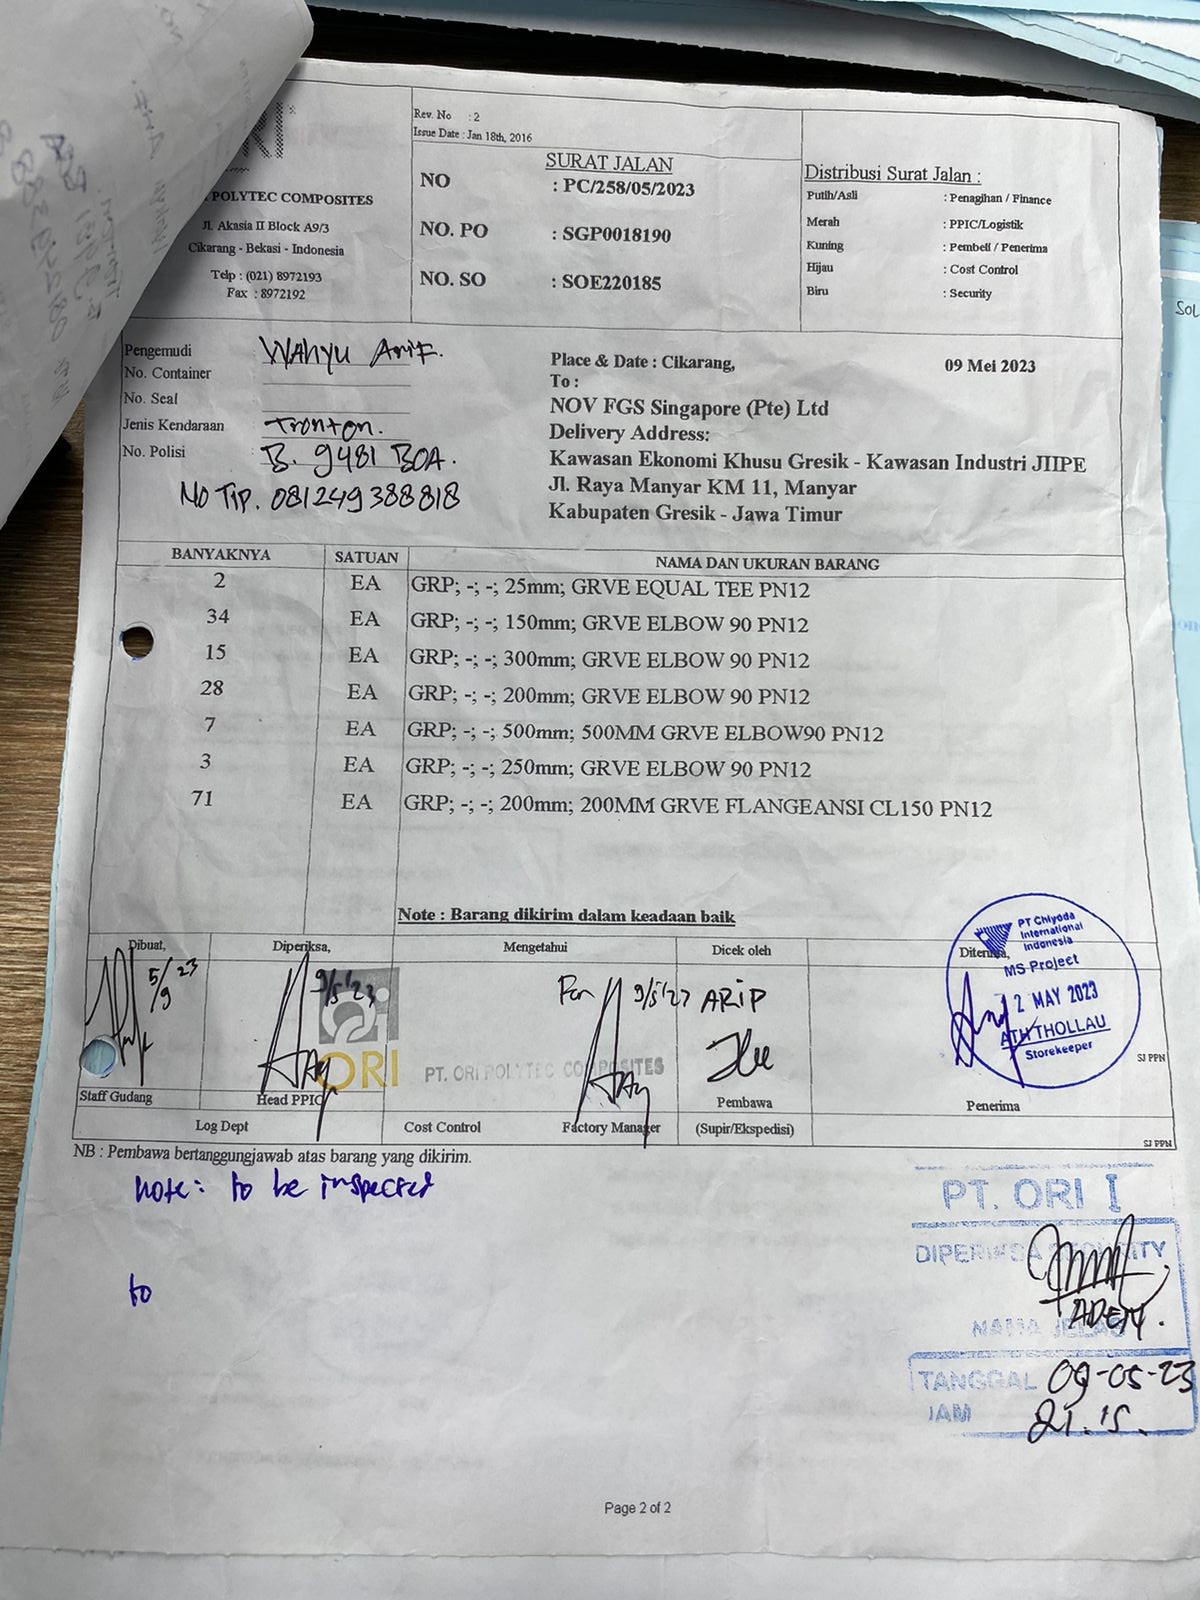 RI
POLYTEC COMPOSITES
Jl. Akasia II Block A9/3
Cikarang - Bekasi - Indonesia
Telp : (021) 8972193
Fax : 8972192
Rev. No : 2
Issue Date : Jan 18th, 2016
SURAT JALAN
NO : PC/258/05/2023
NO. PO : SGP0018190
NO. SO : SOE220185
Distribusi Surat Jalan :
Putih/Asli : Penagihan / Finance
Merah : PPIC/Logistik
Kuning : Pembeli / Penerima
Hijau : Cost Control
Biru : Security
Pengemudi Wahyu Arif.
No. Container
No. Seal
Jenis Kendaraan Tronton.
No. Polisi B. 9481 BOA.
No Tlp. 081249388818
Place & Date : Cikarang, 09 Mei 2023
To :
NOV FGS Singapore (Pte) Ltd
Delivery Address:
Kawasan Ekonomi Khusu Gresik - Kawasan Industri JIIPE
Jl. Raya Manyar KM 11, Manyar
Kabupaten Gresik - Jawa Timur
BANYAKNYA SATUAN NAMA DAN UKURAN BARANG
2 EA GRP; -; -; 25mm; GRVE EQUAL TEE PN12
34 EA GRP; -; -; 150mm; GRVE ELBOW 90 PN12
15 EA GRP; -; -; 300mm; GRVE ELBOW 90 PN12
28 EA GRP; -; -; 200mm; GRVE ELBOW 90 PN12
7 EA GRP; -; -; 500mm; 500MM GRVE ELBOW90 PN12
3 EA GRP; -; -; 250mm; GRVE ELBOW 90 PN12
71 EA GRP; -; -; 200mm; 200MM GRVE FLANGEANSI CL150 PN12
Note : Barang dikirim dalam keadaan baik
Dibuat, Diperiksa, Mengetahui Dicek oleh Diterima,
5/9 23
9/5'23
For 9/5'23
ARIP
ORI PT. ORI POLYTEC COMPOSITES
PT Chiyoda
International
Indonesia
MS Project
2 MAY 2023
ATH THOLLAU
Storekeeper
SJ PPN
Staff Gudang Head PPIC Pembawa Penerima
Log Dept Cost Control Factory Manager (Supir/Ekspedisi)
SJ PPN
NB : Pembawa bertanggungjawab atas barang yang dikirim.
note: to be inspected
to
PT. ORI I
DIPERIKSA SECURITY
ADEN.
NAMA JELAS
TANGGAL 09-05-23
JAM 21.15.
Page 2 of 2